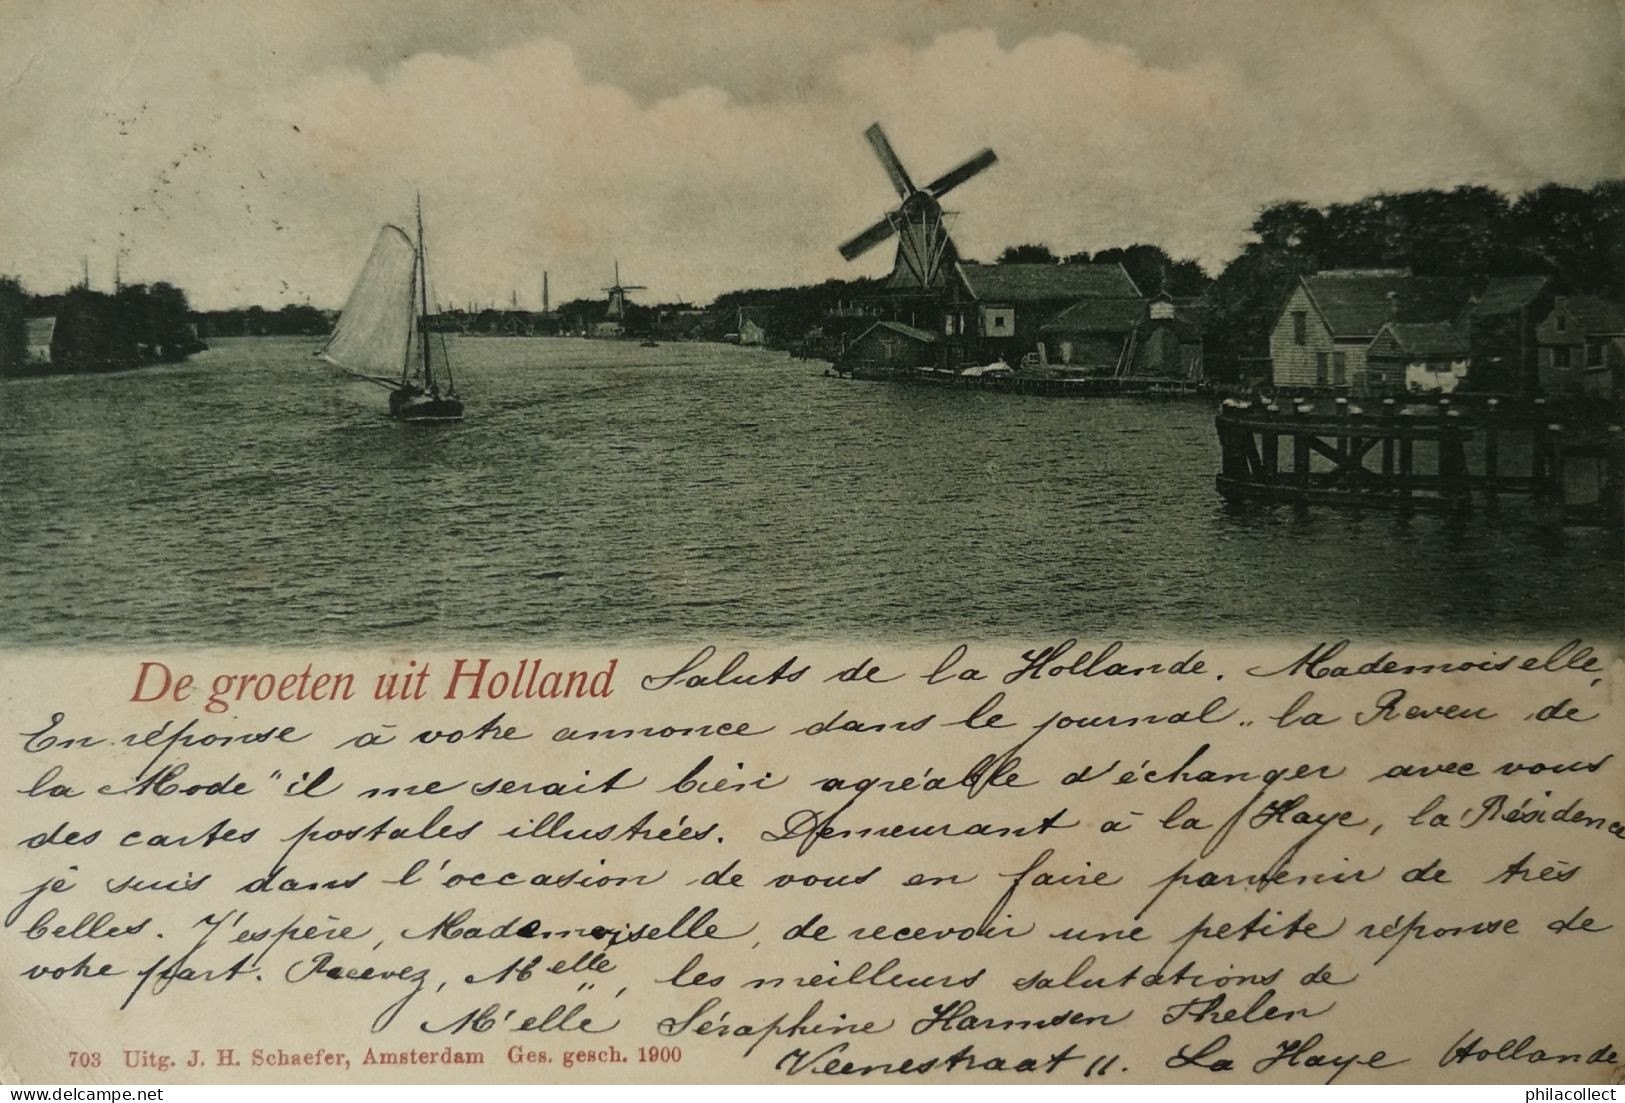 De groeten uit Holland Saluts de la Hollande. Mademoiselle,
En réponse à votre annonce dans le journal „la Reveu de
la Mode" il me serait bien agréable d'échanger avec vous
des cartes postales illustrées. Demeurant à la Haye, la Résidence
je suis dans l'occasion de vous en faire parvenir de très
belles. J'espère, Mademoiselle, de recevoir une petite réponse de
votre part. Recevez, Melle, les meilleurs salutations de
M'elle Séraphine Harmsen Thelen
703 Uitg. J. H. Schaefer, Amsterdam Ges. gesch. 1900 Veenestraat 11. La Haye Hollande
DELCAMPE.NET
philacollect